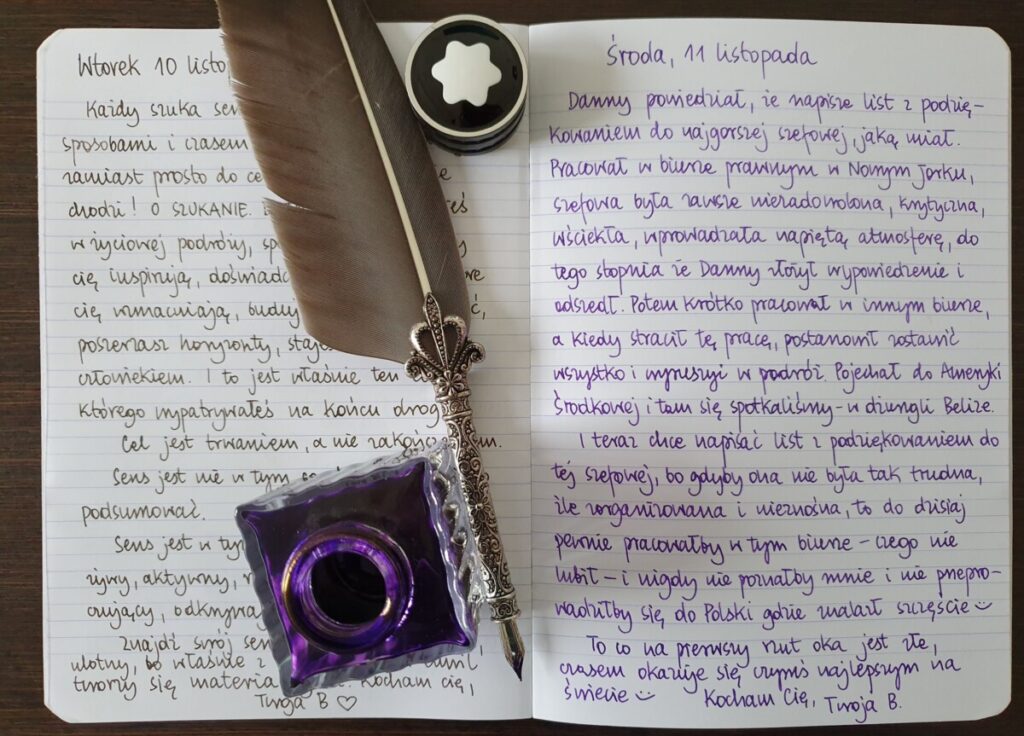 Wtorek 10 listop
Każdy szuka sen
sposobami i czasem
zamiast prosto do ce
drodzi! O SZUKANIE.
w życiowej podróży, sp
cię inspirują, doświadc
cię wzmacniają, buduj
poszerzasz horyzonty, staj
człowiekiem. I to jest właśnie ten
którego wypatrywałeś na końcu drog
Cel jest trwaniem, a nie zakończ
Sens jest nie w tym
podsumować.
Sens jest w ty
żywy, aktywny,
cujący, odkrywa
Znajdź swój sen
ulotny, bo właśnie z
tworzy się materia Kocham cię,
Twoja B ♡
Środa, 11 listopada
Danny powiedział, że napisze list z podzię-
kowaniem do najgorszej szefowej, jaką miał.
Pracował w biurze prawnym w Nowym Jorku,
szefowa była zawsze niezadowolona, krytyczna,
wściekła, wprowadzała napiętą atmosferę, do
tego stopnia że Danny złożył wypowiedzenie i
odszedł. Potem krótko pracował w innym biurze,
a kiedy stracił tę pracę, postanowił zostawić
wszystko i wyruszył w podróż. Pojechał do Ameryki
Środkowej i tam się spotkaliśmy - w dżungli Belize.
I teraz chce napisać list z podziękowaniem do
tej szefowej, bo gdyby ona nie była tak trudna,
źle zorganizowana i nieznośna, to do dzisiaj
pewnie pracowałby w tym biurze - czego nie
lubił - i nigdy nie poznałby mnie i nie przepro-
wadziłby się do Polski gdzie znalazł szczęście
To co na pierwszy rzut oka jest złe,
czasem okazuje się czymś najlepszym na
świecie Kocham Cię, Twoja B.